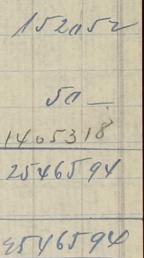 152052
50 —
1405318
2546594
2546594